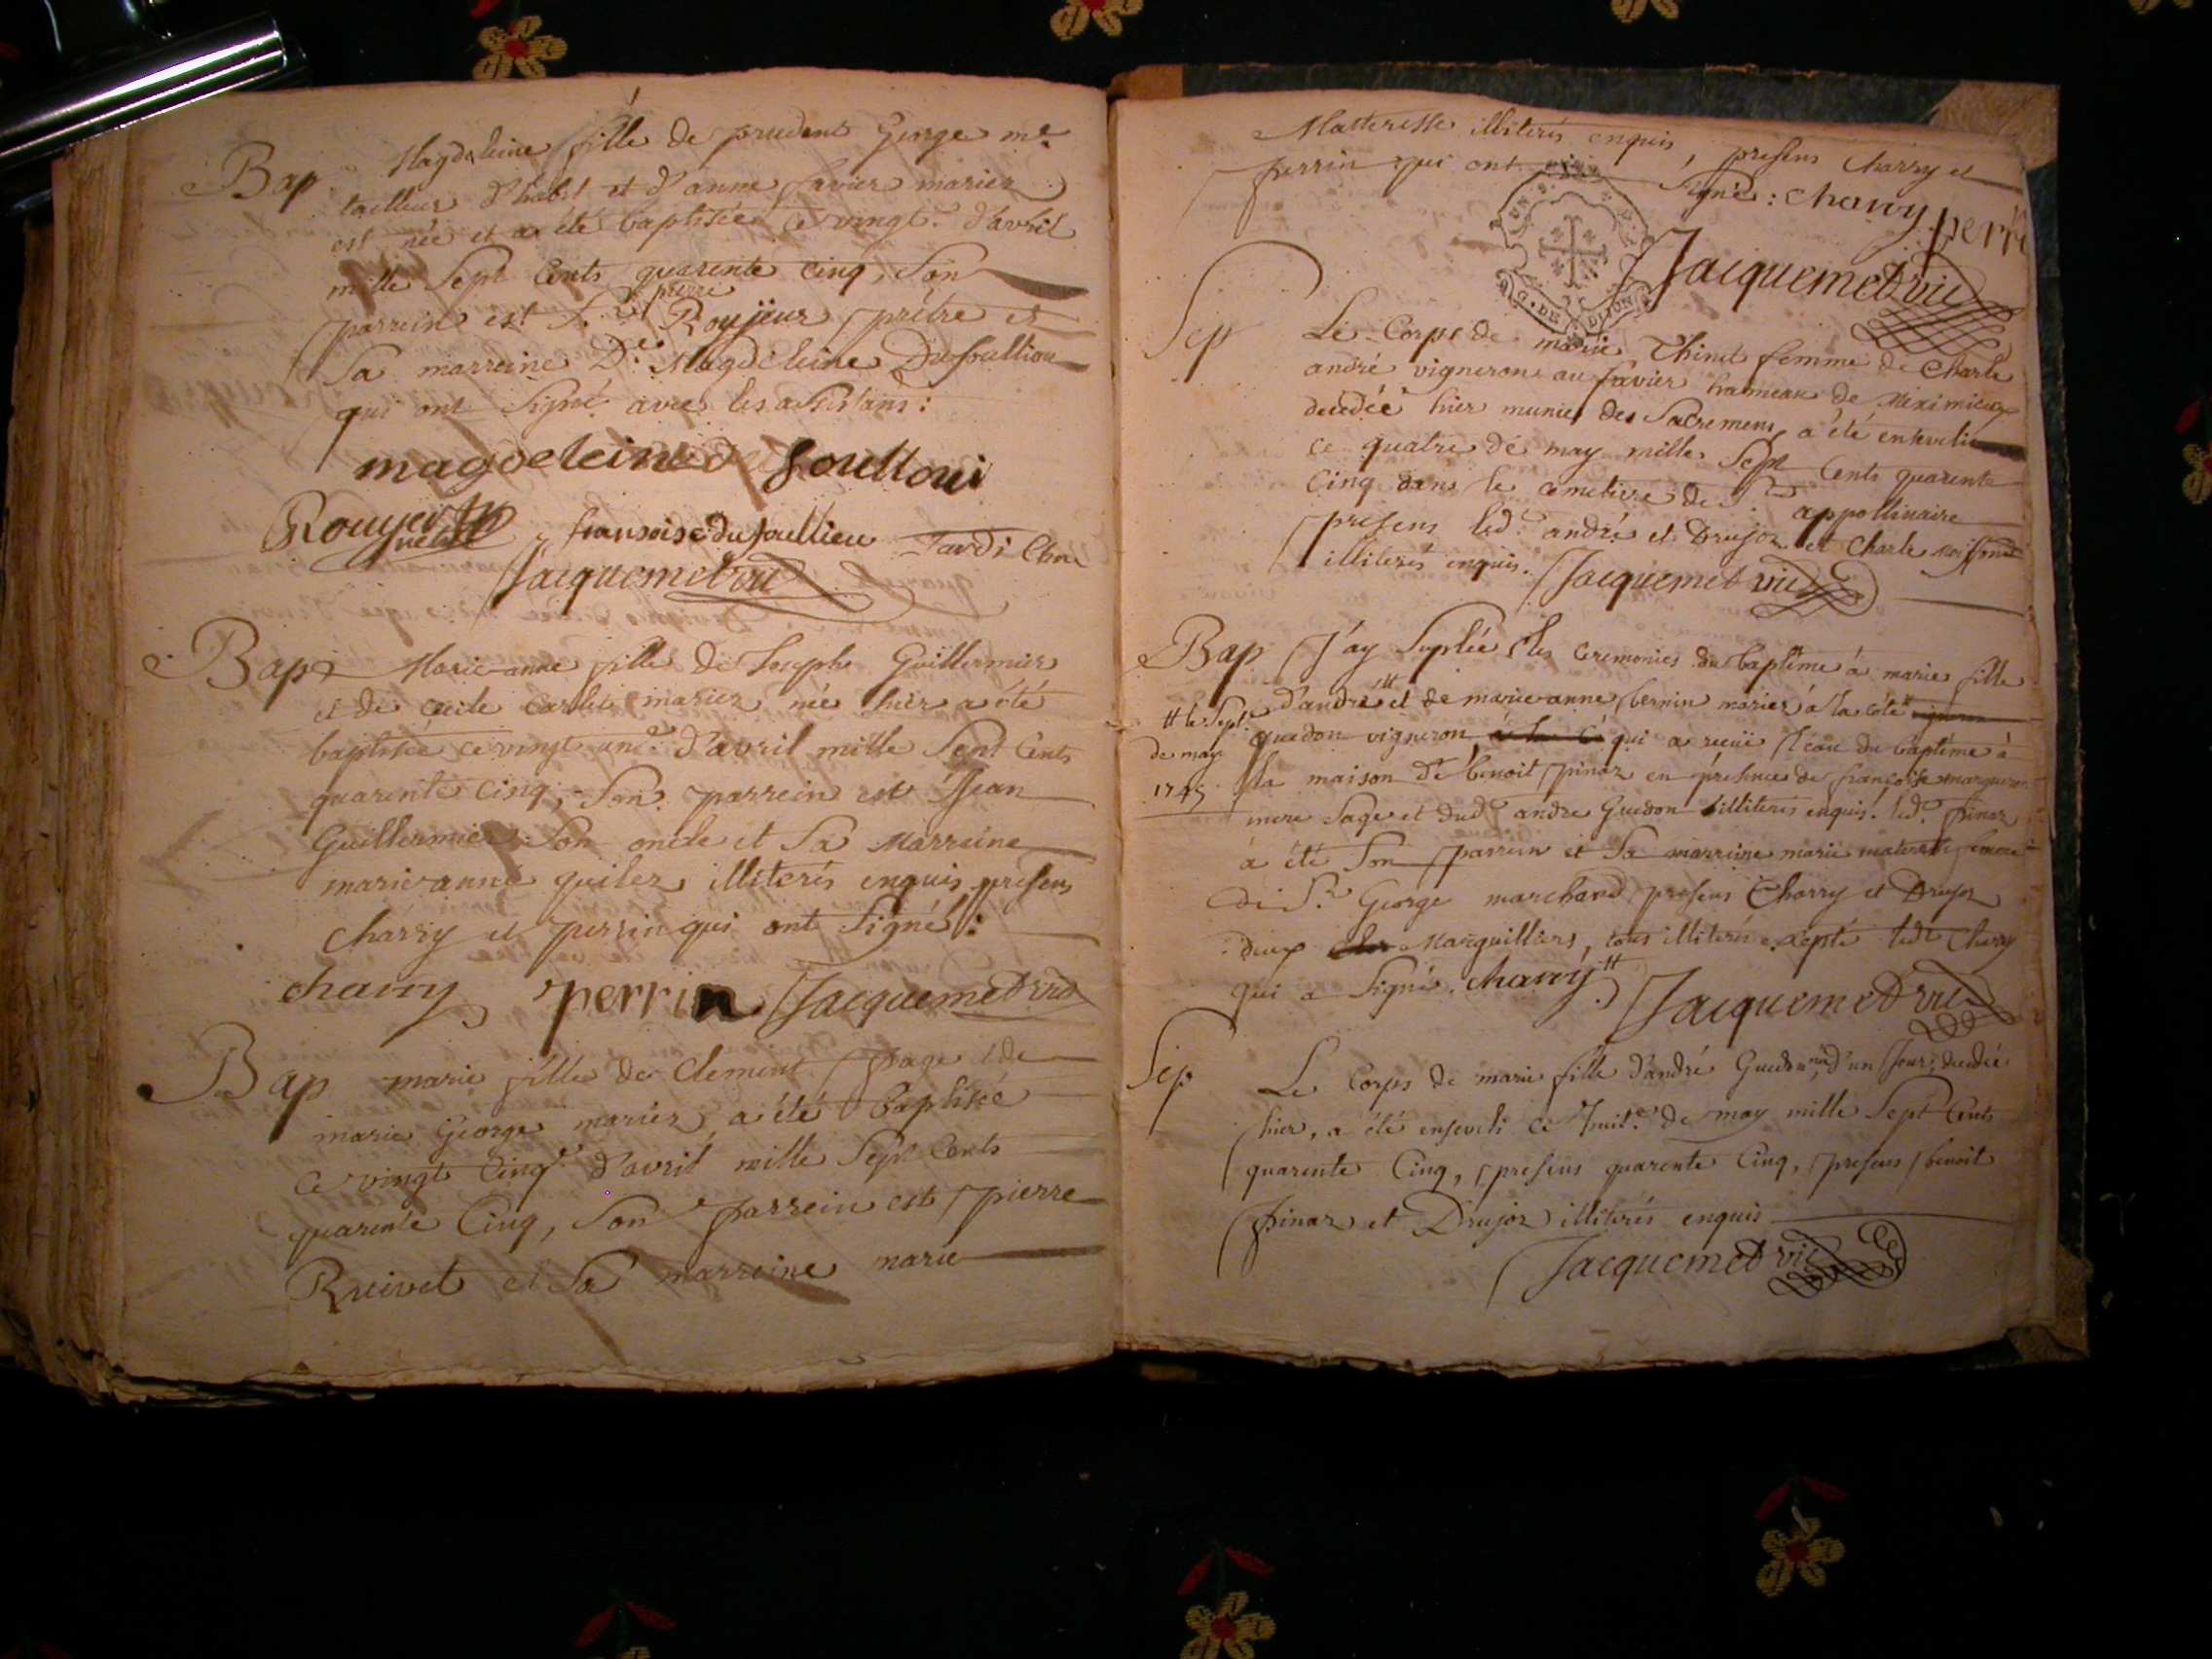 Bap Magdeleine fille de prudent George me
tailleur d'habit et d'anne favier mariez
est née et a été baptisée ce vingt d'avril
mille Sept Cents quarente cinq, Son
parrein est Sr pierre Roujeur prêtre et
Sa marreine De Magdeleine Dufoullion
qui ont Signé avec les assistans:
magdeleine de foulloui
Rouyer fransoise dufoullieu Tardi
Jacquemet vic
Bap Marie-anne fille de Joseph Guillermier
et de cecile carlet mariez née hier a été
baptisée ce vingt une d'avril mille Sept Cents
quarente cinq, Son parrein est Jean
Guillermier Son oncle et Sa Marreine
marie-anne guilez illiterés enquis presens
charry et perrin qui ont Signé:
charry perrin Jacquemet vic
Bap marie fille de Clement page et de
marie George mariez a été baptisée
ce vingt Cinqe d'avril mille Sept Cents
quarente Cinq, Son parrein est pierre
Ruivet et Sa marreine marie
Matteresse illiterés enquis, presens Charry et
perrin qui ont Signé: charry perri
G. DE DIJON
Jacquemet vic
Sep Le Corps de marie Thinet femme de Charle
andré vigneron au favier hameau de Meximieux
decedée hier munie des Sacremens, a été ensevelie
ce quatre de may mille Sept Cents quarente
Cinq dans le cimetiere de St appollinaire
presens led. andré et Drujon et Charle
illiterés enquis. Jacquemet vic
Bap J'ay Suplée les Ceremonies du baptême à marie fille
d'andré et de marie-anne bernin mariez à la côte
tt le Sept de may 1745
guedon vigneron qui a reçüe l'eau du baptême à
la maison de benoit pinaz en presence de françoise
mere Sage et dud andre Guedon illiterés enquis. led. pinaz
à été Son parrein et Sa marreine marie materesse femme
de Sr George marchand presens Charry et Drujon
deux Marguilliers, tous illiterés excepté led. Charry
qui a Signé. charry tt Jacquemet vic
Sep Le Corps de marie fille d'andré Guedon, d'un Jour, decedée
hier, a été enseveli ce huite de may mille Sept Cents
quarente Cinq, presens quarente Cinq, presens benoit
pinaz et Drujon illiterés enquis
Jacquemet vic